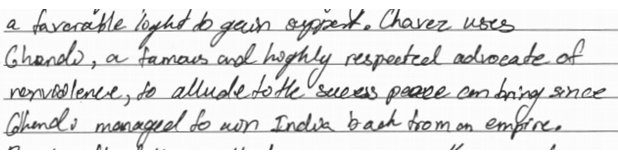 a favorable light to gain support. Chavez uses
Ghandi, a famous and highly respected advocate of
nonviolence, to allude to the success peace can bring since
Ghandi managed to win India back from an empire.